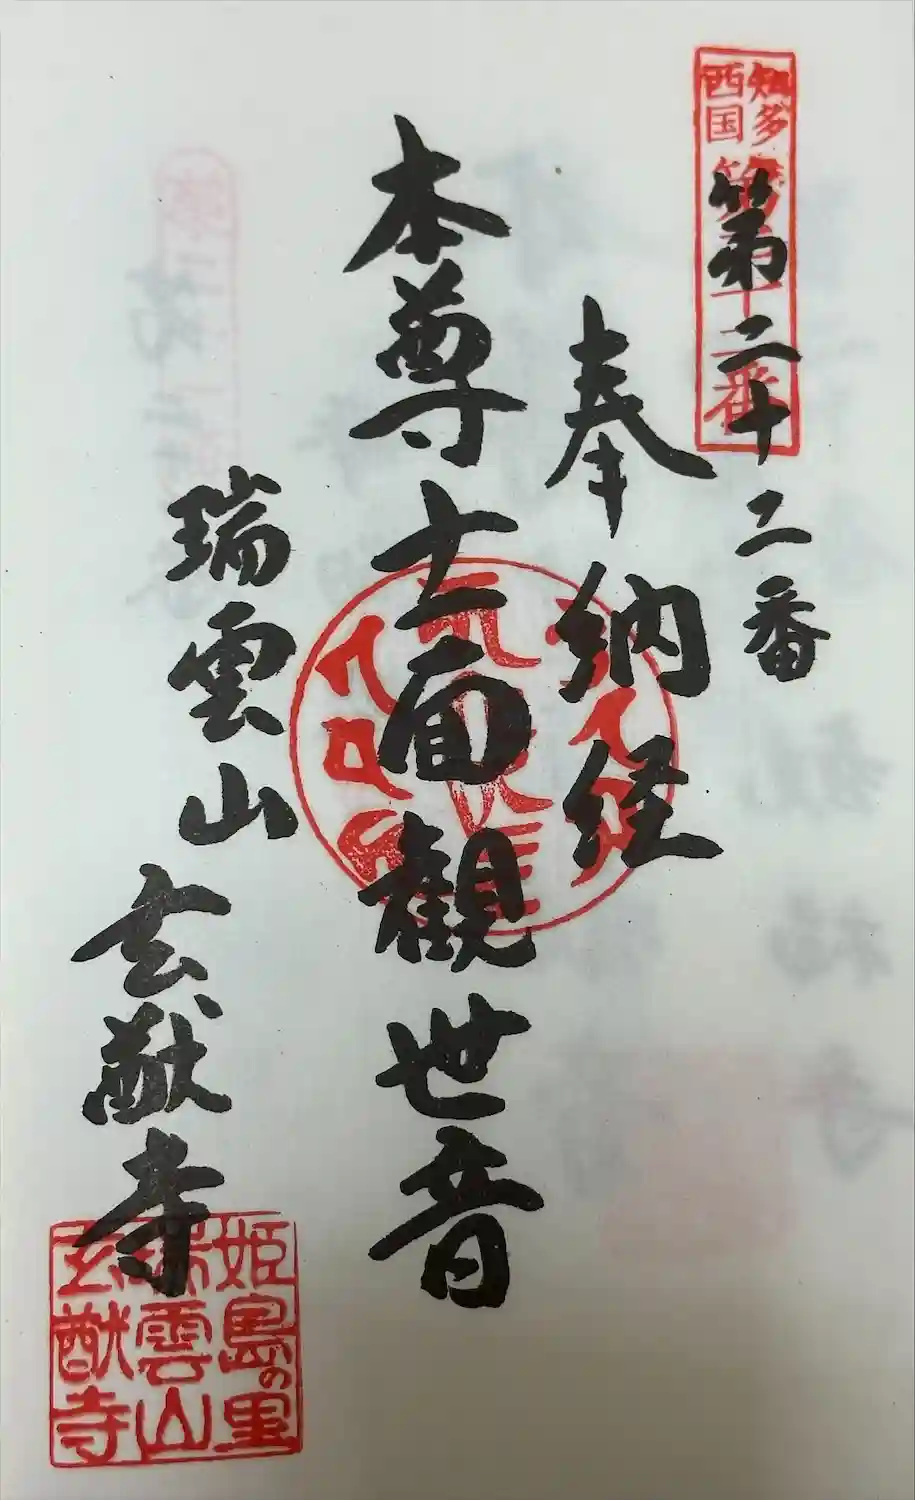 知多
西国
第二十二番
奉納経
本尊十一面観世音
瑞雲山
玄猷寺
姫島の里
瑞雲山
玄猷寺